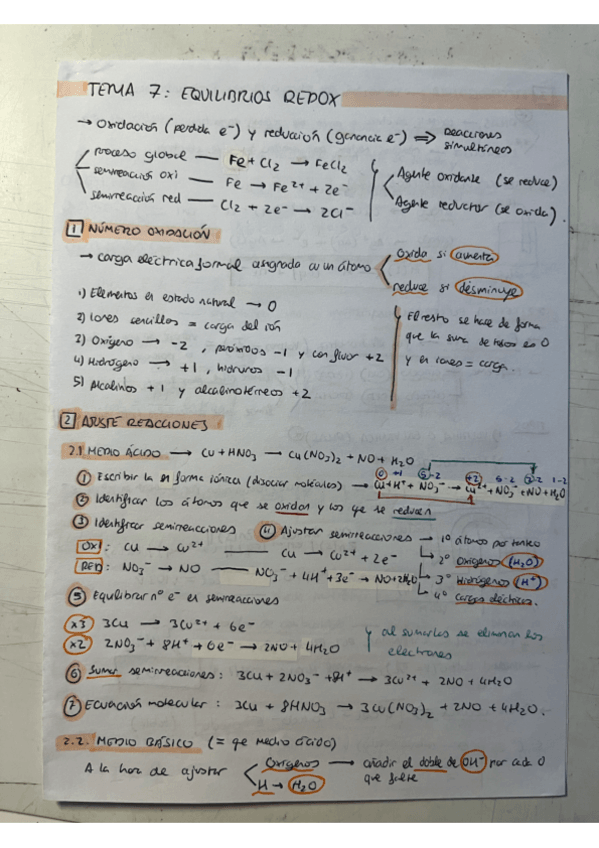 TEMA 7: EQUILIBRIOS REDOX
→ Oxidación (perdida e⁻) y reducción (ganancia e⁻) ⇒ Reacciones simultáneas
proceso global — Fe + Cl₂ → FeCl₂
semirreacción oxi — Fe → Fe²⁺ + 2e⁻
semirreacción red — Cl₂ + 2e⁻ → 2Cl⁻
Agente oxidante (se reduce)
Agente reductor (se oxida).
1 NÚMERO OXIDACIÓN
→ carga eléctrica formal asignada a un átomo
oxida si aumenta
reduce si disminuye
1) Elementos en estado natural → 0
2) Iones sencillos = carga del ión
3) Oxígeno → -2, peróxidos -1 y con fluor +2
4) Hidrógeno → +1, hidruros -1
5) Alcalinos +1 y alcalinotérreos +2
y El resto se hace de forma
que la suma de todos es 0
y en iones = carga.
2 AJUSTE REACCIONES
2.1 MEDIO ÁCIDO → Cu + HNO₃ → Cu(NO₃)₂ + NO + H₂O
1 Escribir la en forma iónica (disociar moléculas) → Cu + H⁺ + NO₃⁻ → Cu²⁺ + NO₃⁻ + NO + H₂O
2 Identificar los átomos que se oxidan y los que se reducen
3 Identificar semirreacciones
4 Ajustar semirreacciones → 1º átomos por tanteo
2º Oxígenos (H₂O)
3º Hidrógenos (H⁺)
4º Cargas eléctricas.
OXI: Cu → Cu²⁺ — Cu → Cu²⁺ + 2e⁻
RED: NO₃⁻ → NO — NO₃⁻ + 4H⁺ + 3e⁻ → NO + 2H₂O
5 Equilibrar nº e⁻ en semirreacciones
x3 3Cu → 3Cu²⁺ + 6e⁻
x2 2NO₃⁻ + 8H⁺ + 6e⁻ → 2NO + 4H₂O
y al sumarlas se eliminan los
electrones
6 Sumar semirreacciones: 3Cu + 2NO₃⁻ + 8H⁺ → 3Cu²⁺ + 2NO + 4H₂O
7 Ecuación molecular: 3Cu + 8HNO₃ → 3Cu(NO₃)₂ + 2NO + 4H₂O.
2.2. MEDIO BÁSICO (= que medio ácido)
A la hora de ajustar
Oxígenos → añadir el doble de OH⁻ por cada O
que falte
H → H₂O